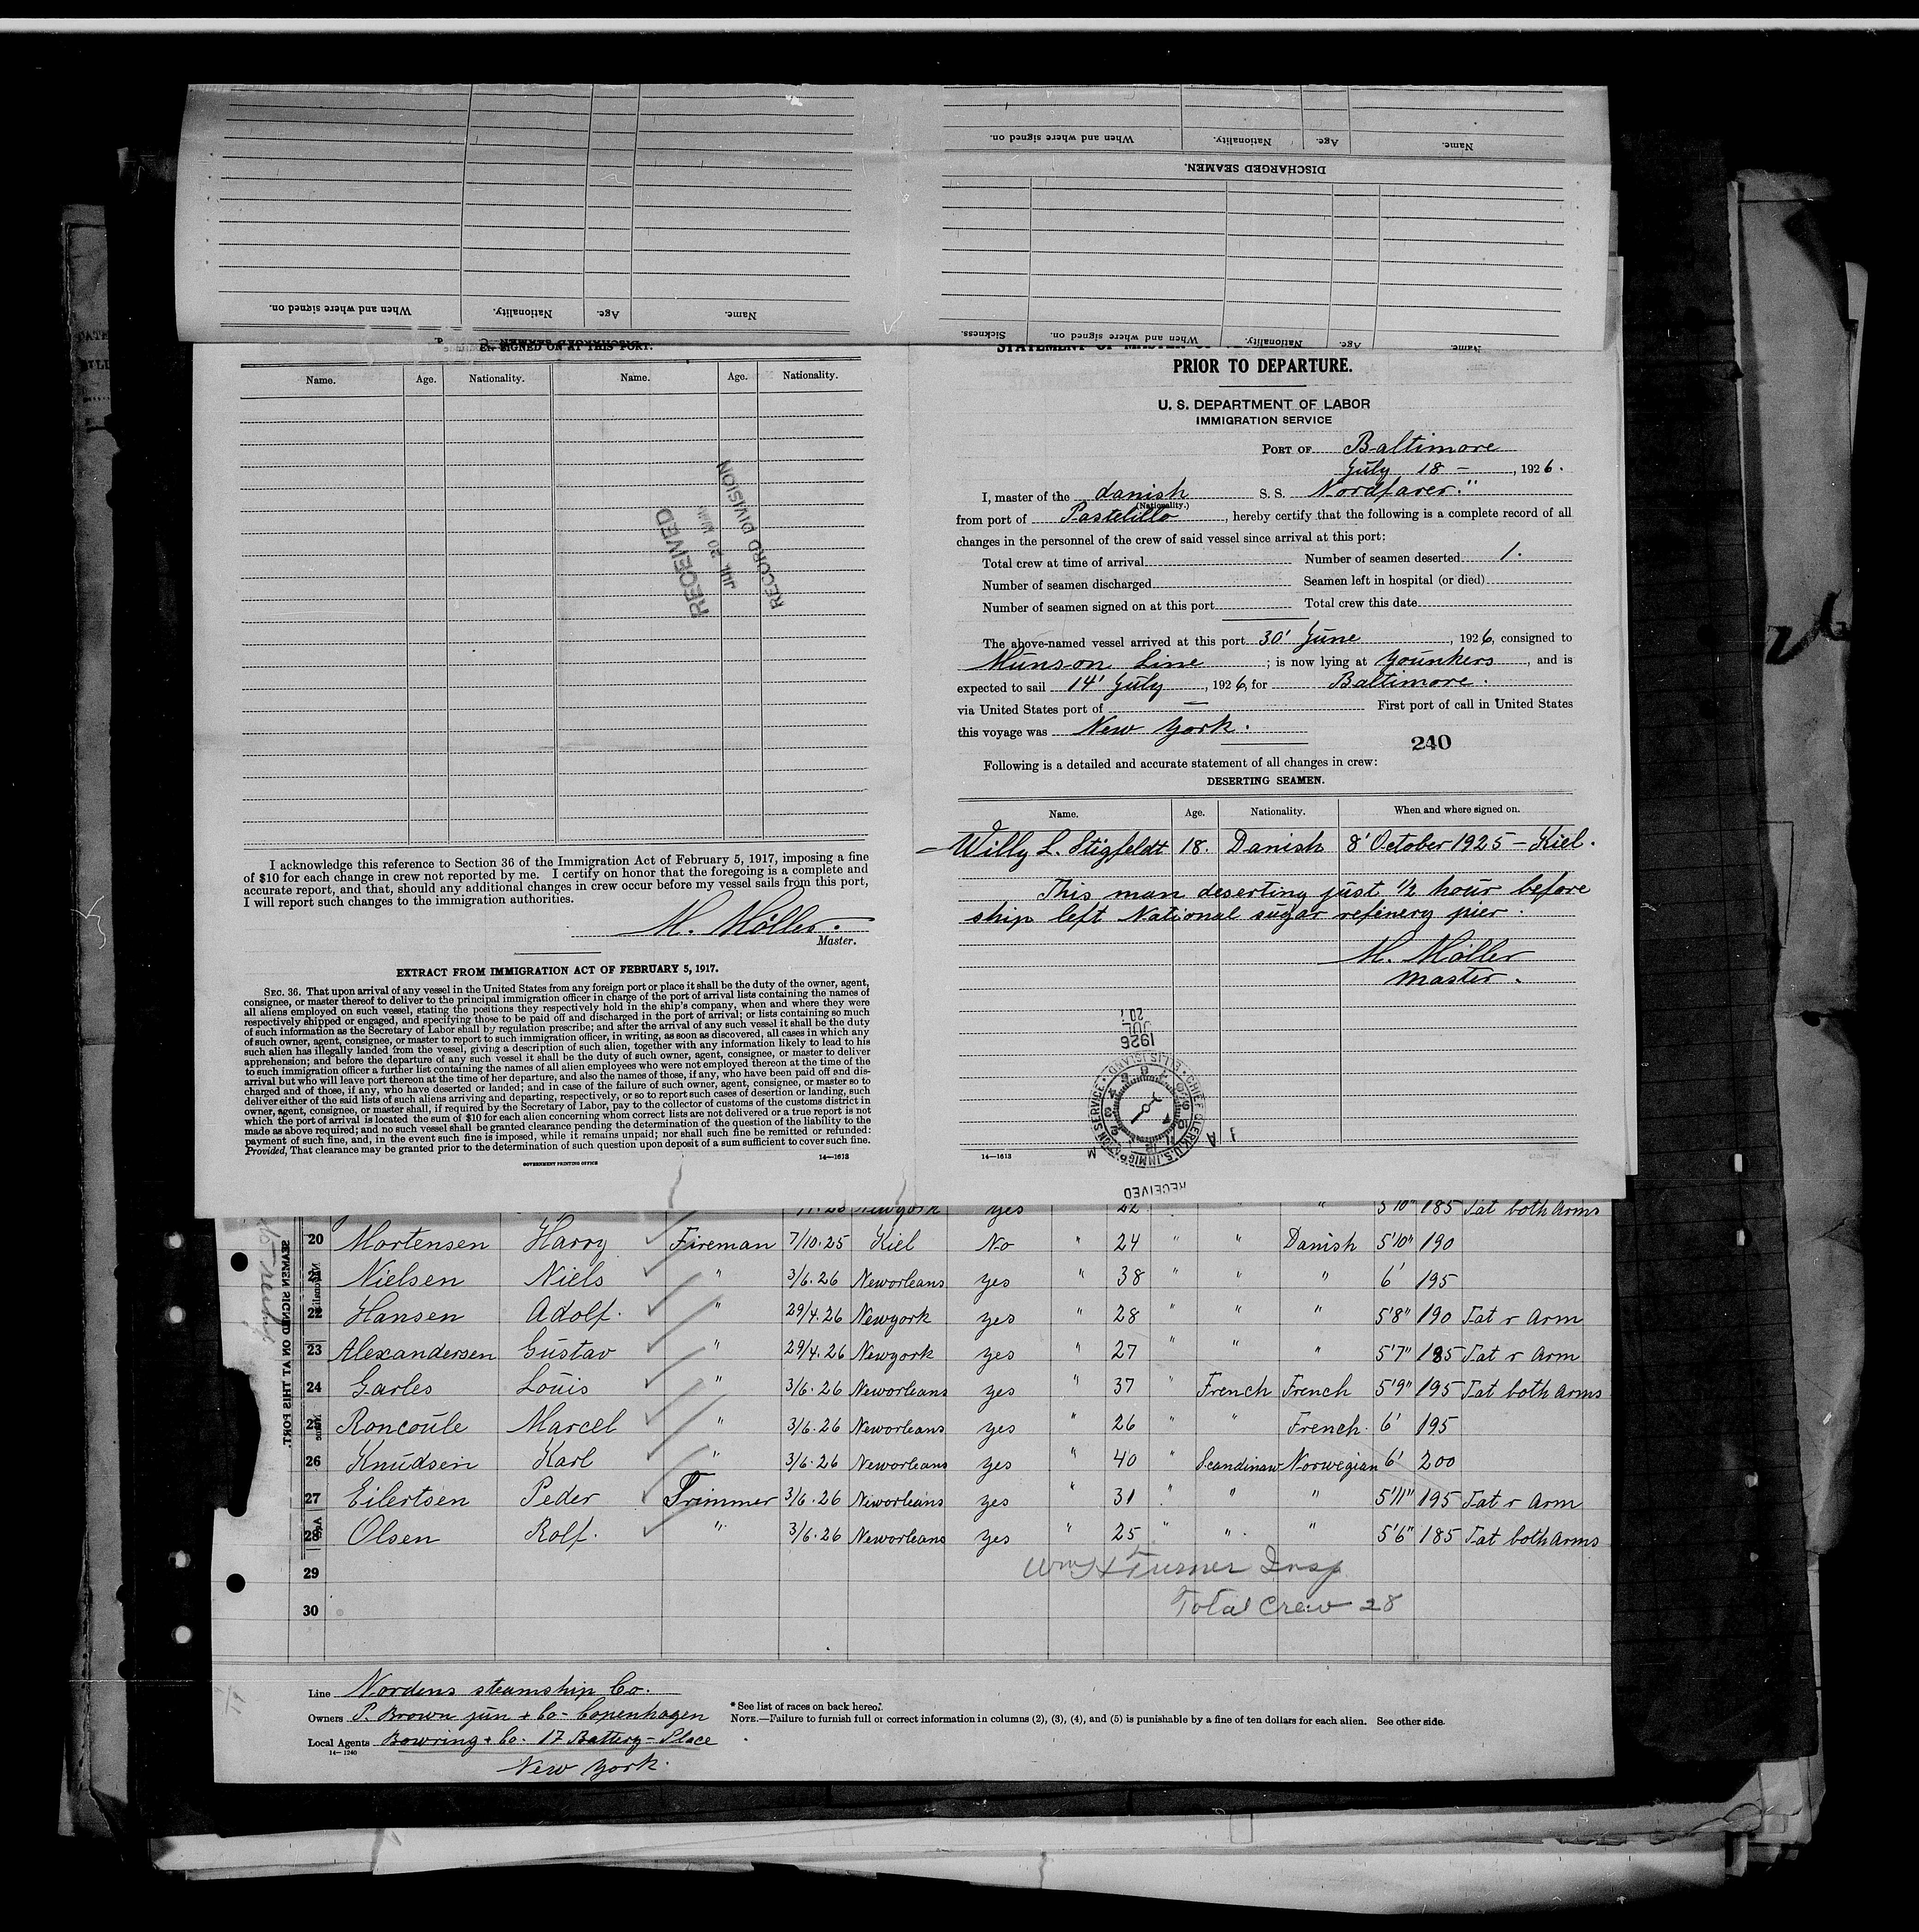 When and where signed on.
Nationality.
Age.
Name.
DISCHARGED SEAMEN.
When and where signed on.
Nationality.
Age.
Name.
Sickness.
When and where signed on.
Nationality.
Age.
Name.
SIGNED ON AT THIS PORT.
Name. Age. Nationality. Name. Age. Nationality.
RECEIVED
JUL 20
RECORD DIVISION
I acknowledge this reference to Section 36 of the Immigration Act of February 5, 1917, imposing a fine
of $10 for each change in crew not reported by me. I certify on honor that the foregoing is a complete and
accurate report, and that, should any additional changes in crew occur before my vessel sails from this port,
I will report such changes to the immigration authorities.
M. Möller.
Master.
EXTRACT FROM IMMIGRATION ACT OF FEBRUARY 5, 1917.
SEC. 36. That upon arrival of any vessel in the United States from any foreign port or place it shall be the duty of the owner, agent,
consignee, or master thereof to deliver to the principal immigration officer in charge of the port of arrival lists containing the names of
all aliens employed on such vessel, stating the positions they respectively hold in the ship's company, when and where they were
respectively shipped or engaged, and specifying those to be paid off and discharged in the port of arrival; or lists containing so much
of such information as the Secretary of Labor shall by regulation prescribe; and after the arrival of any such vessel it shall be the duty
of such owner, agent, consignee, or master to report to such immigration officer, in writing, as soon as discovered, all cases in which any
such alien has illegally landed from the vessel, giving a description of such alien, together with any information likely to lead to his
apprehension; and before the departure of any such vessel it shall be the duty of such owner, agent, consignee, or master to deliver
to such immigration officer a further list containing the names of all alien employees who were not employed thereon at the time of the
arrival but who will leave port thereon at the time of her departure, and also the names of those, if any, who have been paid off and dis-
charged and of those, if any, who have deserted or landed; and in case of the failure of such owner, agent, consignee, or master so to
deliver either of the said lists of such aliens arriving and departing, respectively, or so to report such cases of desertion or landing, such
owner, agent, consignee, or master shall, if required by the Secretary of Labor, pay to the collector of customs of the customs district in
which the port of arrival is located the sum of $10 for each alien concerning whom correct lists are not delivered or a true report is not
made as above required; and no such vessel shall be granted clearance pending the determination of the question of the liability to the
payment of such fine, and, in the event such fine is imposed, while it remains unpaid; nor shall such fine be remitted or refunded:
Provided, That clearance may be granted prior to the determination of such question upon deposit of a sum sufficient to cover such fine.
GOVERNMENT PRINTING OFFICE 14—1613
STATEMENT OF MASTER OF
PRIOR TO DEPARTURE.
U. S. DEPARTMENT OF LABOR
IMMIGRATION SERVICE
PORT OF Baltimore
July 18 – , 1926.
I, master of the danish S. S. Nordfarer."
(Nationality.)
from port of Pastelillo , hereby certify that the following is a complete record of all
changes in the personnel of the crew of said vessel since arrival at this port:
Total crew at time of arrival Number of seamen deserted 1.
Number of seamen discharged Seamen left in hospital (or died)
Number of seamen signed on at this port Total crew this date
The above-named vessel arrived at this port 30' June , 1926, consigned to
Munson Line ; is now lying at Younkers , and is
expected to sail 14' July , 1926, for Baltimore.
via United States port of — First port of call in United States
this voyage was New York.
240
Following is a detailed and accurate statement of all changes in crew:
DESERTING SEAMEN.
Name. Age. Nationality. When and where signed on.
– Willy L. Stigfeldt 18. Danish 8' October 1925 – Kiel.
This man deserting just 1/2 hour before
ship left National sugar refinery pier.
M. Möller
master.
1926
JUL
20
CHIEF CLERK U.S. IMMIGRATION SERVICE ELLIS ISLAND
RECEIVED
14—1613
Newyork yes " 22 " " 5'10" 185 Tat both arms
20 Mortensen Harry Fireman 7/10.25 Kiel No " 24 " " Danish 5'10" 190
21 Nielsen Niels " 3/6.26 Neworleans yes " 38 " " " 6' 195
22 Hansen Adolf. " 29/4.26 Newyork yes " 28 " " " 5'8" 190 Tat r Arm
23 Alexandersen Gustav " 29/4.26 Newyork yes " 27 " " " 5'7" 185 Tat r Arm
24 Garles Louis " 3/6.26 Neworleans yes " 37 " French French 5'9" 195 Tat both arms
25 Roncoule Marcel " 3/6.26 Neworleans yes " 26 " " French. 6' 195
26 Knudsen Karl " 3/6.26 Neworleans yes " 40 " Scandinaw Norwegian 6' 200
27 Eilertsen Peder Trimmer 3/6.26 Neworleans yes " 31 " " " 5'11" 195 Tat r Arm
28 Olsen Rolf. " 3/6.26 Neworleans yes " 25 " " " 5'6" 185 Tat both arms
29 Wm H Turner Insp
30 Total Crew 28
SEAMEN SIGNED ON AT THIS PORT.
Line Nordens steamship Co.
Owners P. Brown jun + Co – Copenhagen
Local Agents Bowring + Co. 17 Battery – Place
14—1240
New York.
*See list of races on back hereof.
NOTE.—Failure to furnish full or correct information in columns (2), (3), (4), and (5) is punishable by a fine of ten dollars for each alien. See other side.